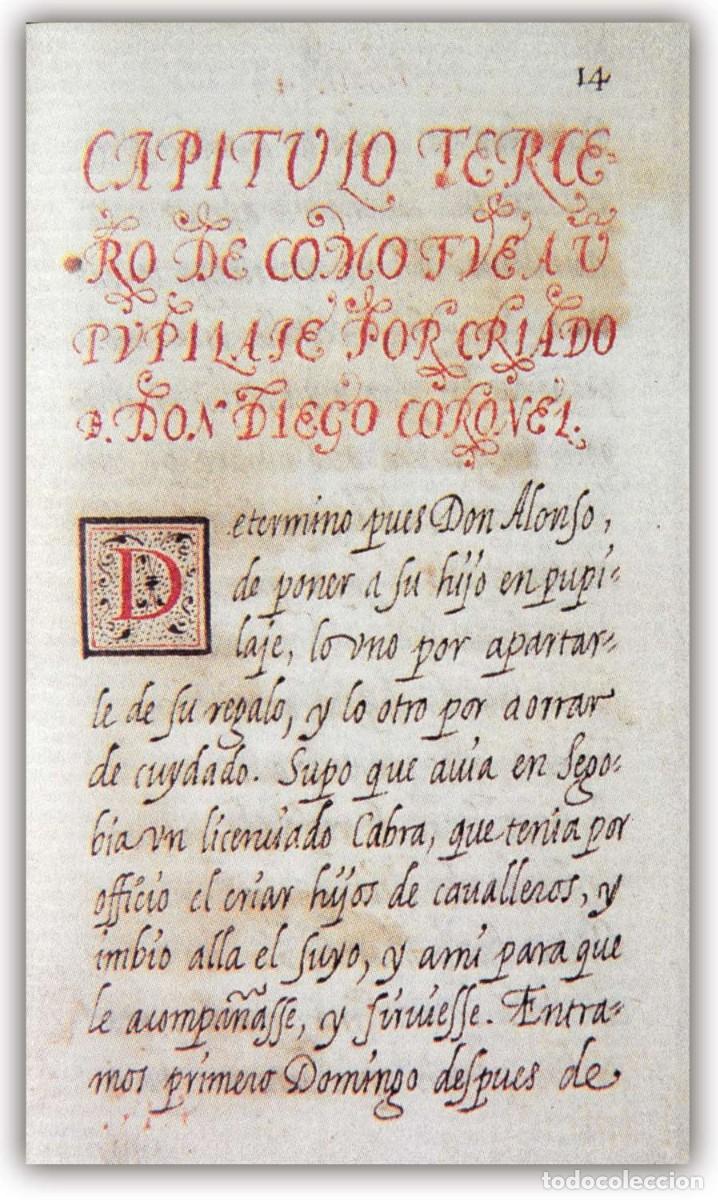 14
CAPITULO TERCE-
RO DE COMO FVE A Ū
PVPILAIE POR CRIADO
D. DON DIEGO CORONEL.
Determino pues Don Alonso,
de poner a su hijo en pupi-
laje, lo vno por apartar-
le de su regalo, y lo otro por aorrar
de cuydado. Supo que auia en Sego-
bia vn licenuiado Cabra, que tenia por
officio el criar hijos de caualleros, y
imbio alla el suyo, y ami para que
le acompañasse, y siruiesse. Entra-
mos primero Domingo despues de
todocoleccion